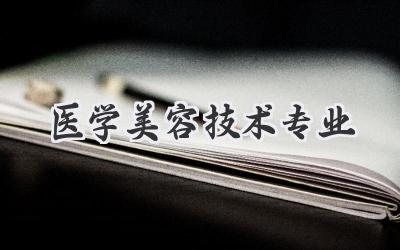 医学美容技术专业